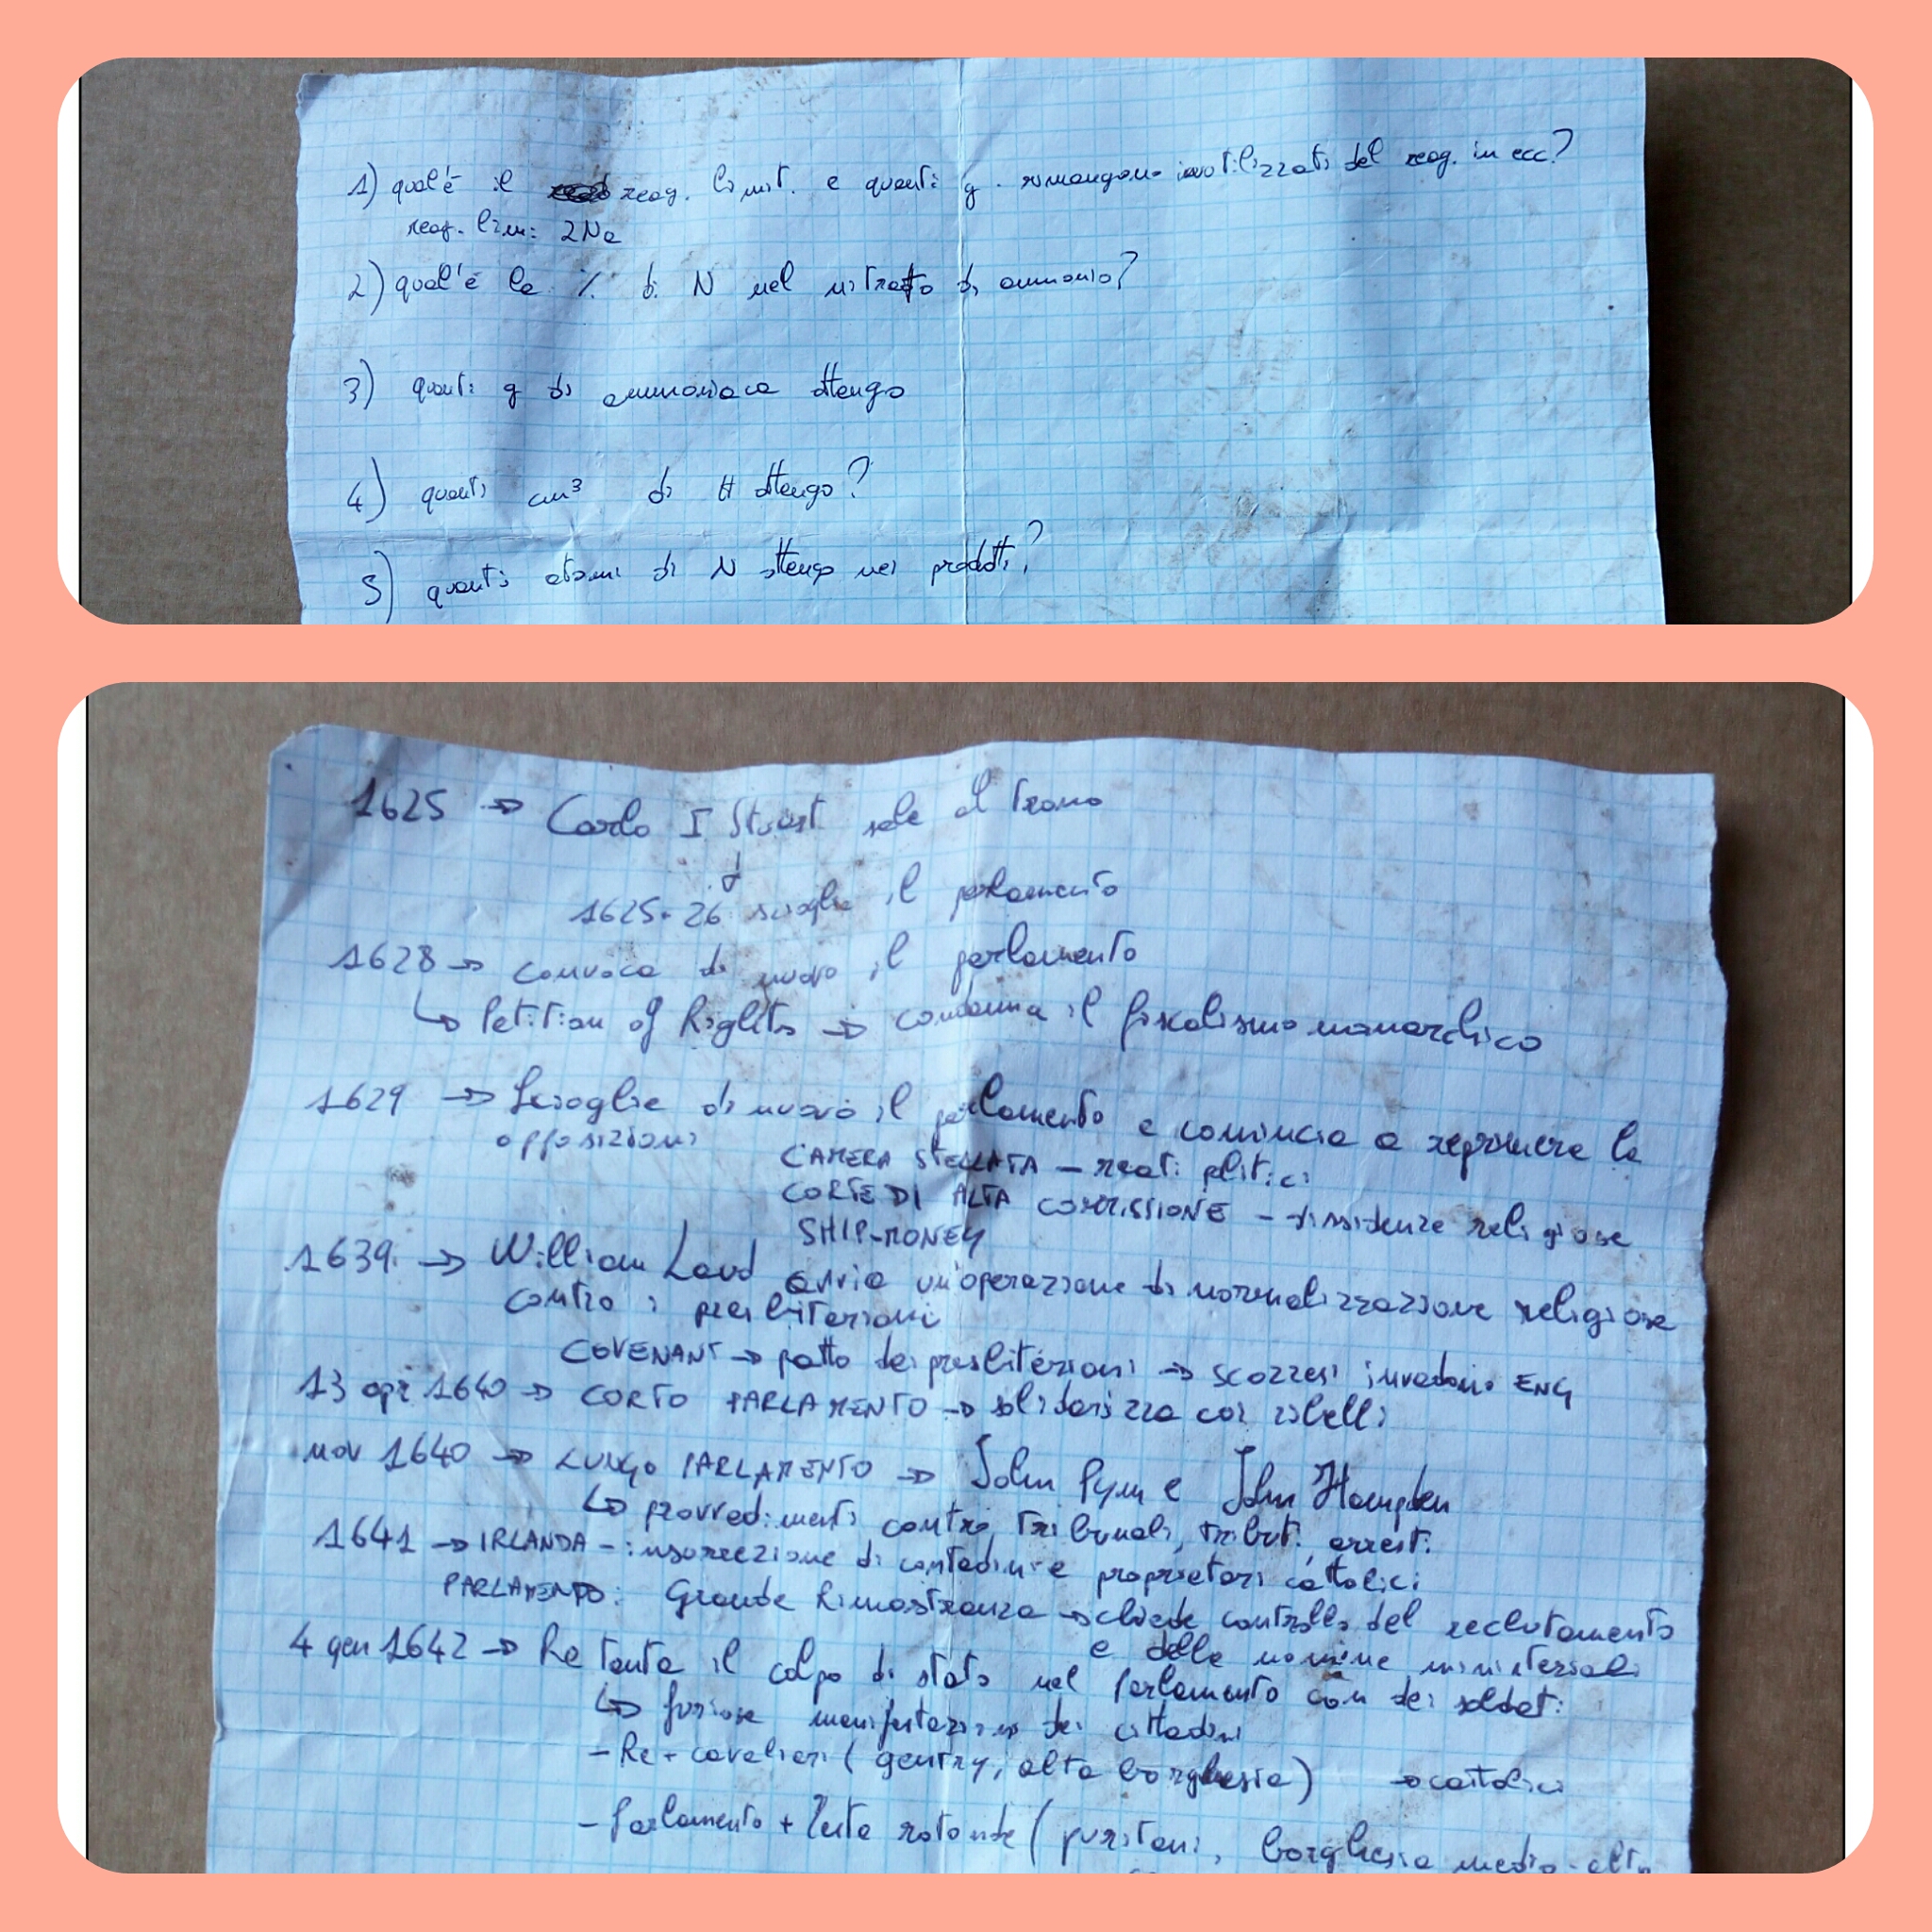 1) qual'è il reag. limit. e quanti g. rimangono inutilizzati del reag. in ecc?
reag. lim: 2Na
2) qual'è la % di N nel nitrato di ammonio?
3) quanti g di ammoniaca ottengo
4) quanti cm³ di H ottengo?
5) quanti atomi di N ottengo nei prodotti?
1625 → Carlo I Stuart sale al trono
↓
1625-26 scioglie il parlamento
1628 → convoca di nuovo il parlamento
↳ Petition of Rights → condanna il fiscalismo monarchico
1629 → Scioglie di nuovo il parlamento e comincia a reprimere le
opposizioni
CAMERA STELLATA – reati politici
CORTE DI ALTA COMMISSIONE – dissidenze religiose
SHIP-MONEY
1639 → William Laud avvia un'operazione di normalizzazione religiosa
contro i presbiteriani
COVENANT → patto dei presbiteriani → scozzesi invadono ENG
13 apr 1640 → CORTO PARLAMENTO → solidarizza coi ribelli
nov 1640 → LUNGO PARLAMENTO → John Pym e John Hampden
↳ provvedimenti contro tribunali, tributi, arresti
1641 → IRLANDA – insurrezione di contadini e proprietari cattolici
PARLAMENTO: Grande Rimostranza → chiede controllo del reclutamento
e delle nomine ministeriali
4 gen 1642 → Re tenta il colpo di stato nel Parlamento con dei soldati
↳ furiose manifestazioni dei cittadini
– Re + cavalieri (gentry, alta borghesia) → cattolici
– Parlamento + Teste rotonde (puritani, borghesia medio-alta